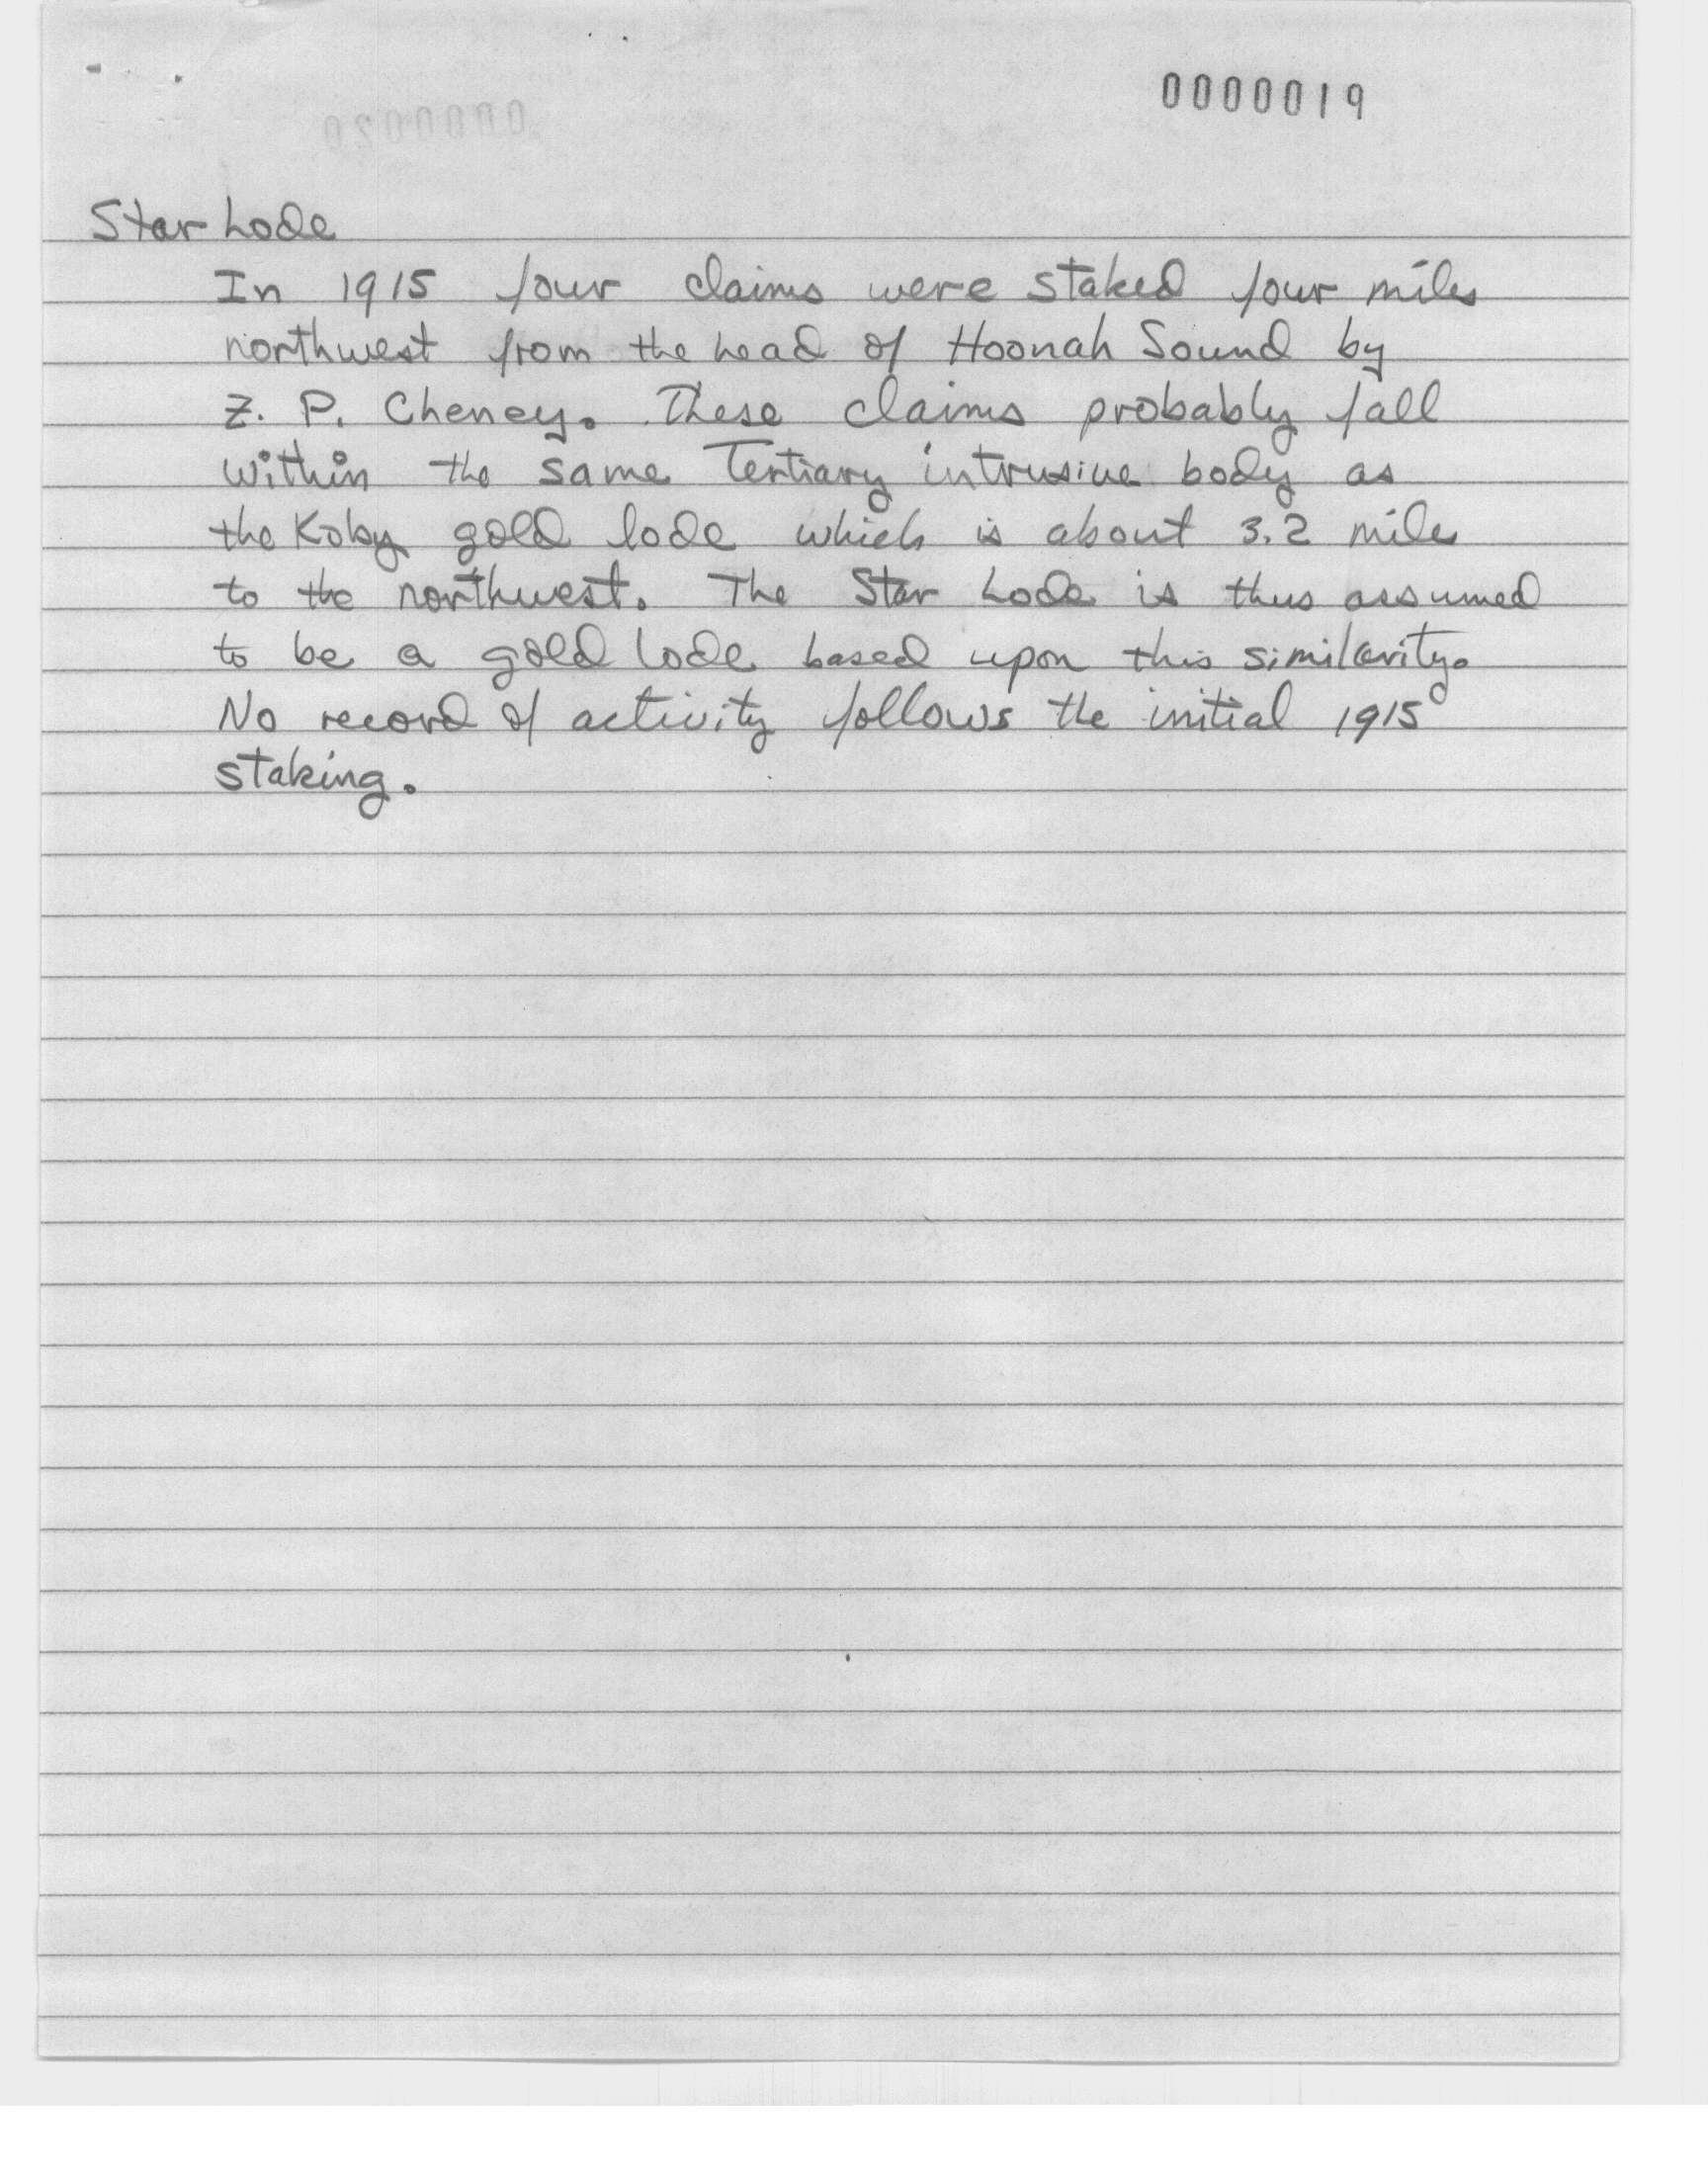 0000019
Star Lode
In 1915 four claims were staked four miles
northwest from the head of Hoonah Sound by
Z. P. Cheney. These claims probably fall
within the same Tertiary intrusive body as
the Koby gold lode which is about 3.2 miles
to the northwest. The Star Lode is thus assumed
to be a gold lode based upon this similarity.
No record of activity follows the initial 1915
staking.